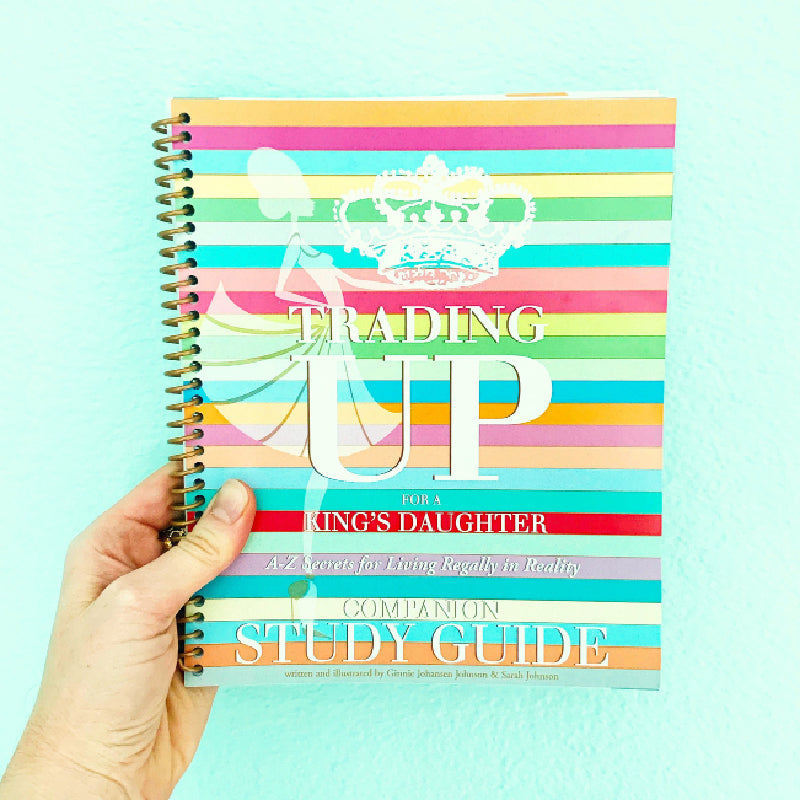 TRADING
UP
FOR A
KING'S DAUGHTER
A-Z Secrets for Living Regally in Reality
COMPANION
STUDY GUIDE
written and illustrated by Ginnie Johansen Johnson & Sarah Johnson